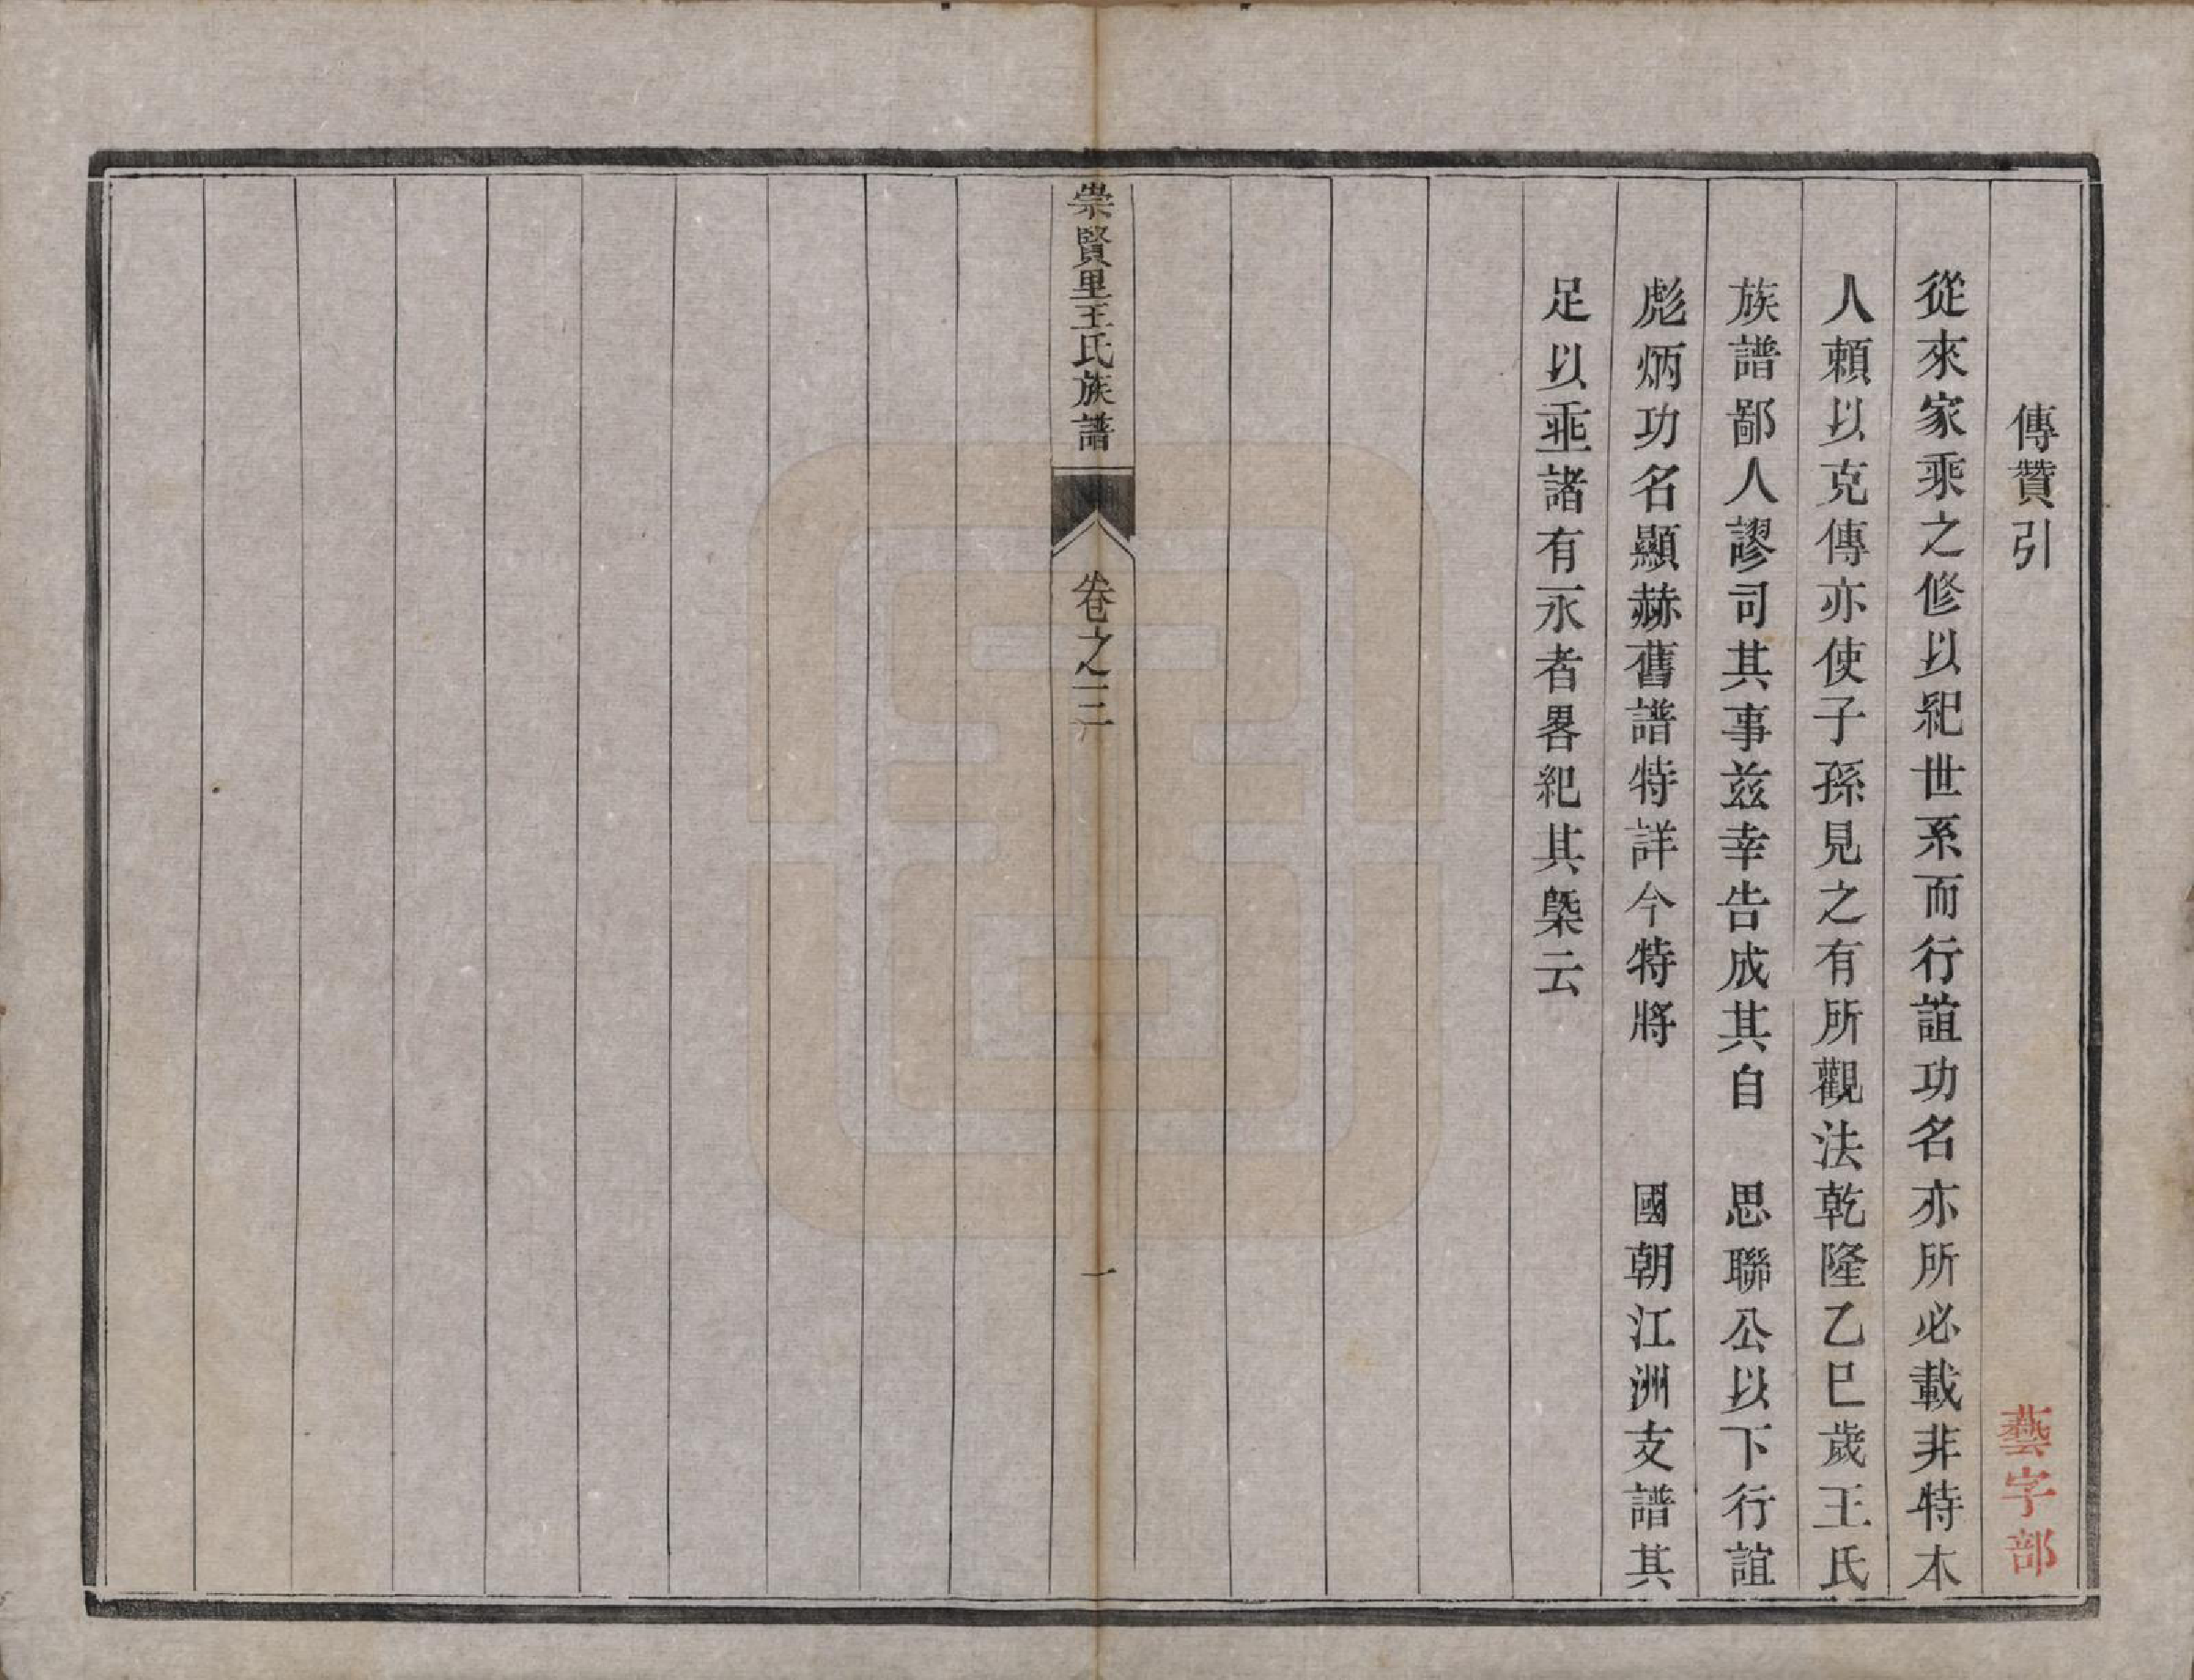 傳贊引
藝字部
從來家乘之修以紀世系而行誼功名亦所必載非特本
人賴以克傳亦使子孫見之有所觀法乾隆乙巳歲王氏
族譜鄙人謬司其事茲幸告成其自　思聯公以下行誼
彪炳功名顯赫舊譜特詳今特將　國朝江洲支譜其
足以垂諸有永者畧紀其槩云
崇賢里王氏族譜
卷之三
一